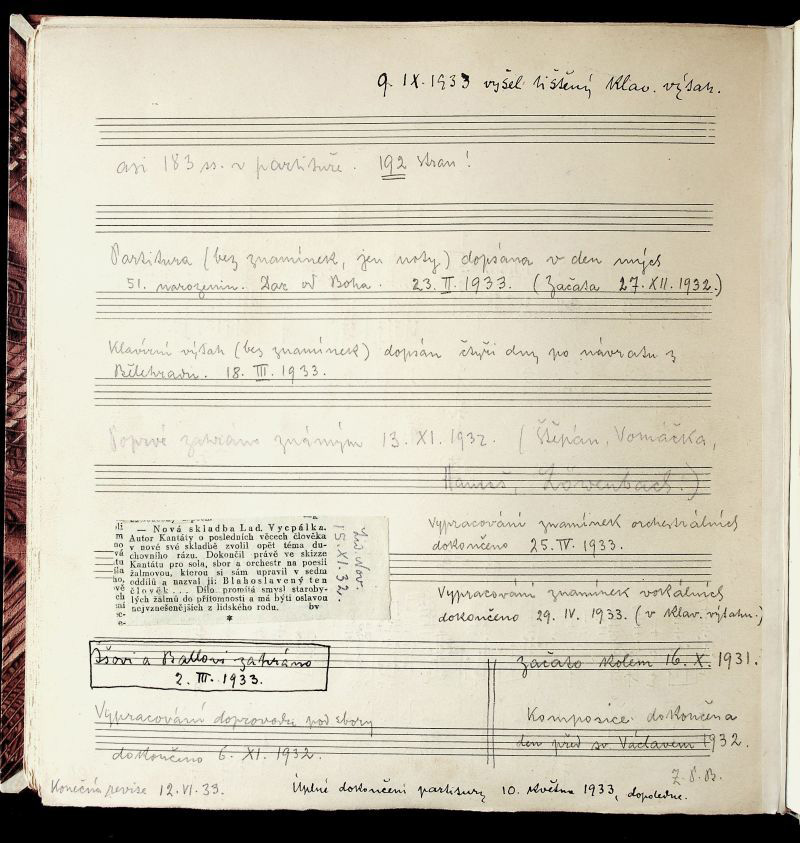 9. IX. 1933 vyšel tištěný klav. výtah.
asi 183 ss. v partituře. 192 stran!
Partitura (bez znamínek, jen noty) dopsána v den mých
51. narozenin. Dar od Boha. 23. II. 1933. (Začata 27. XII. 1932.)
Klavírní výtah (bez znamínek) dopsán čtyři dny po návratu z
Bělehradu. 18. III. 1933.
Poprvé zahráno známým 13. XI. 1932. (Štěpán, Vomáčka,
Hanuš, Löwenbach.)
— Nová skladba Lad. Vycpálka.
Autor Kantáty o posledních věcech člověka
v nové své skladbě zvolil opět téma du-
chovního rázu. Dokončil právě ve skizze
Kantátu pro sola, sbor a orchestr na poesii
žalmovou, kterou si sám upravil v sedm
oddílů a nazval ji: Blahoslavený ten
člověk... Dílo promítá smysl staroby-
lých žalmů do přítomnosti a má býti oslavou
nejvznešenějších z lidského rodu. bv
*
Lid. Nov.
15. XI. 32.
Vypracování znamínek orchestrálních
dokončeno 25. IV. 1933.
Vypracování znamínek vokálních
dokončeno 29. IV. 1933. (v klav. výtahu.)
a Ballovi zahráno
2. III. 1933.
Začato kolem 16. X. 1931.
Vypracování doprovodu pod sbory
dokončeno 6. XI. 1932.
Komposice dokončena
den před sv. Václavem 1932.
Z. P. B.
Konečná revise 12. VI. 33.
Úplné dokončení partitury 10. května 1933, dopoledne.